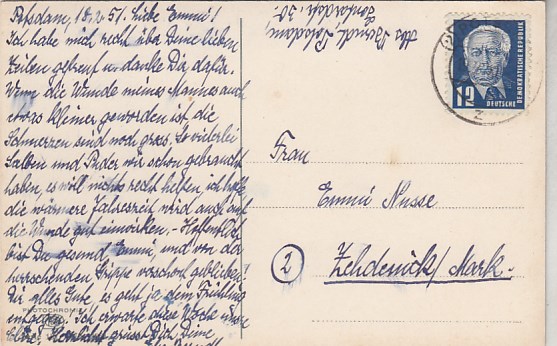 Potsdam, 18.2.51. Liebe Emmi!
Ich habe mich recht über Deine lieben
Zeilen gefreut u. danke Dir dafür.
Wenn die Wunde meines Mannes auch
etwas kleiner geworden ist die
Schmerzen sind noch gross. So vielerlei
Salben und Puder wir schon gebraucht
haben, es will nichts recht helfen, ich hoffe
die wärmere Jahreszeit wird auch auf
die Wunde gut einwirken. - Hoffentlich
bist Du gesund, Emmi, und von der
herrschenden Grippe verschont geblieben!
Dir alles Gute, es geht ja dem Frühling
entgegen. Ich erwarte diese Woche
Herzlichst grüsst Dich Deine
Potsdam,
DEUTSCHE
DEMOKRATISCHE REPUBLIK
12
Frau
Emmi Nusse
(2) Zehdenick/Mark.
PHOTOCHROMIE